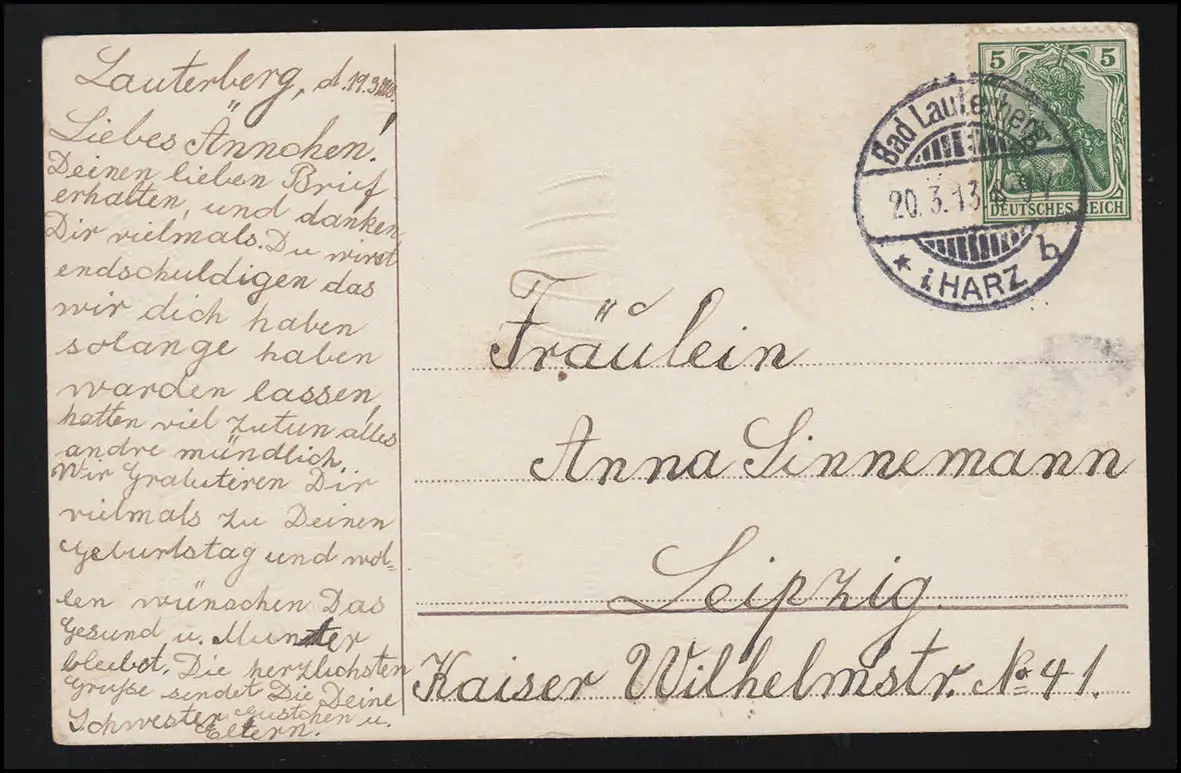 Lauterberg, d. 19.3.
Liebes Ännchen!
Deinen lieben Brief
erhalten, und danken
Dir vielmals. Du wirst
endschuldigen das
wir dich haben
solange haben
warden lassen,
hatten viel zutun, alles
andre mündlich.
Wir Gralutiren Dir
vielmals zu Deinen
Geburtstag und wol-
len wünschen Das
Gesund u. Munter
bleibst. Die herzlichsten
Grüße sendet Die Deine
Schwester Gustchen u.
Eltern.
5 5
DEUTSCHES REICH
Bad Lauterberg
20.3.13
* i. HARZ b
Fräulein
Anna Sinnemann
Leipzig.
Kaiser Wilhelmstr. No 41.